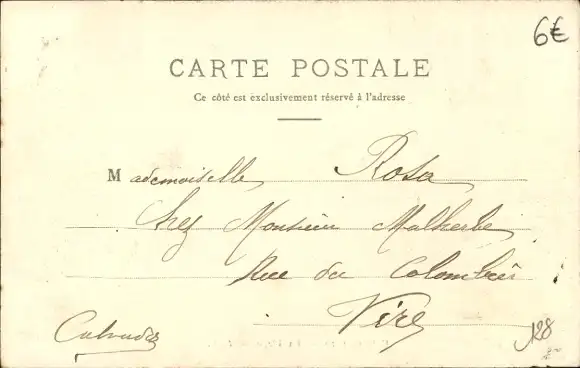 6€
CARTE POSTALE
Ce côté est exclusivement réservé à l'adresse
Mademoiselle Rosa
Chez Monsieur Malherbe
Rue du Colombier
Vire
Calvados
128